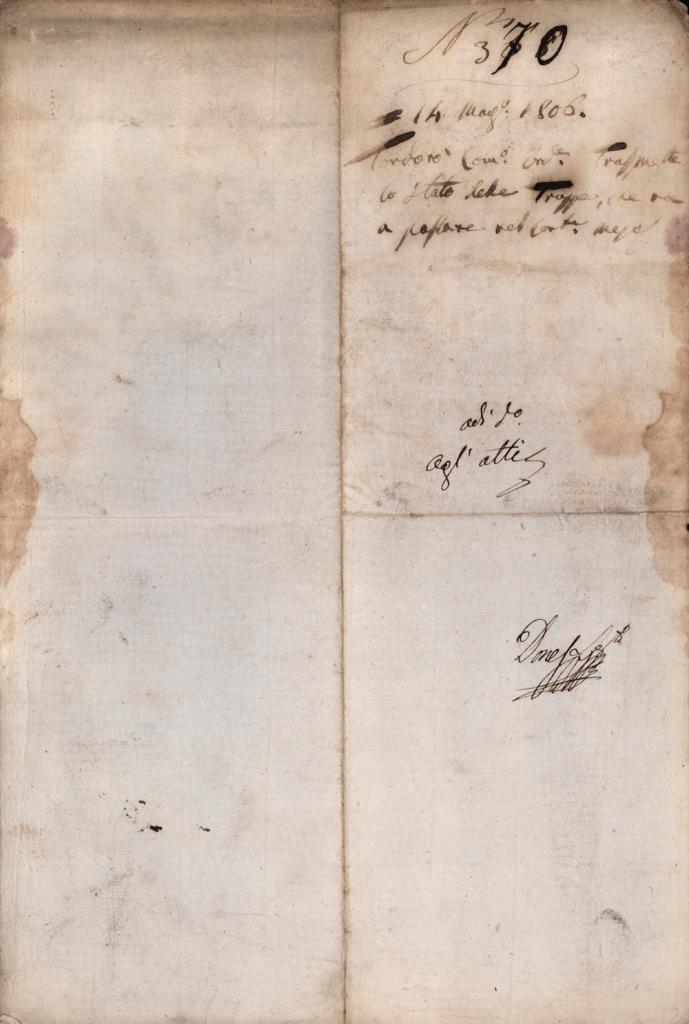 N.º 370
14. Mag.º 1806.
Com.e Ord.e Trasmette
lo stato delle Truppe, che va
a passare nel corr.e mese
adì d.º
agli atti